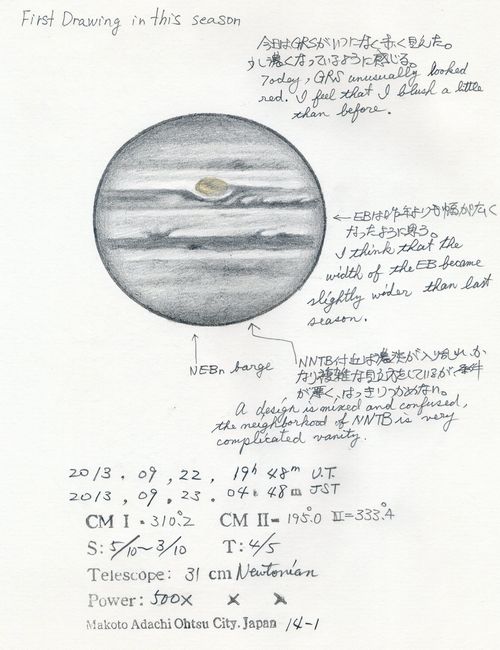 First Drawing in this season
今日はGRSがいつになく赤く見えた。
少し濃くなっているように感じる。
Today, GRS unusually looked
red. I feel that I blush a little
than before.
← EBは昨年よりも幅が広く
なったように思う。
I think that the
width of the EB became
slightly wider than last
season.
NEBn barge
NNTB付近は濃淡が入り乱れ、か
なり複雑な見え方をしているが、条件
が悪く、はっきりつかめない。
A design is mixed and confused,
the neighborhood of NNTB is very
complicated vanity.
2013. 09, 22, 19h 48m U.T.
2013, 09. 23. 04h 48m JST
CM I = 310.°2 CM II= 195.°0 III=333.°4
S: 5/10~3/10 T: 4/5
Telescope: 31 cm Newtonian
Power: 500X X X
Makoto Adachi Ohtsu City. Japan 14-1